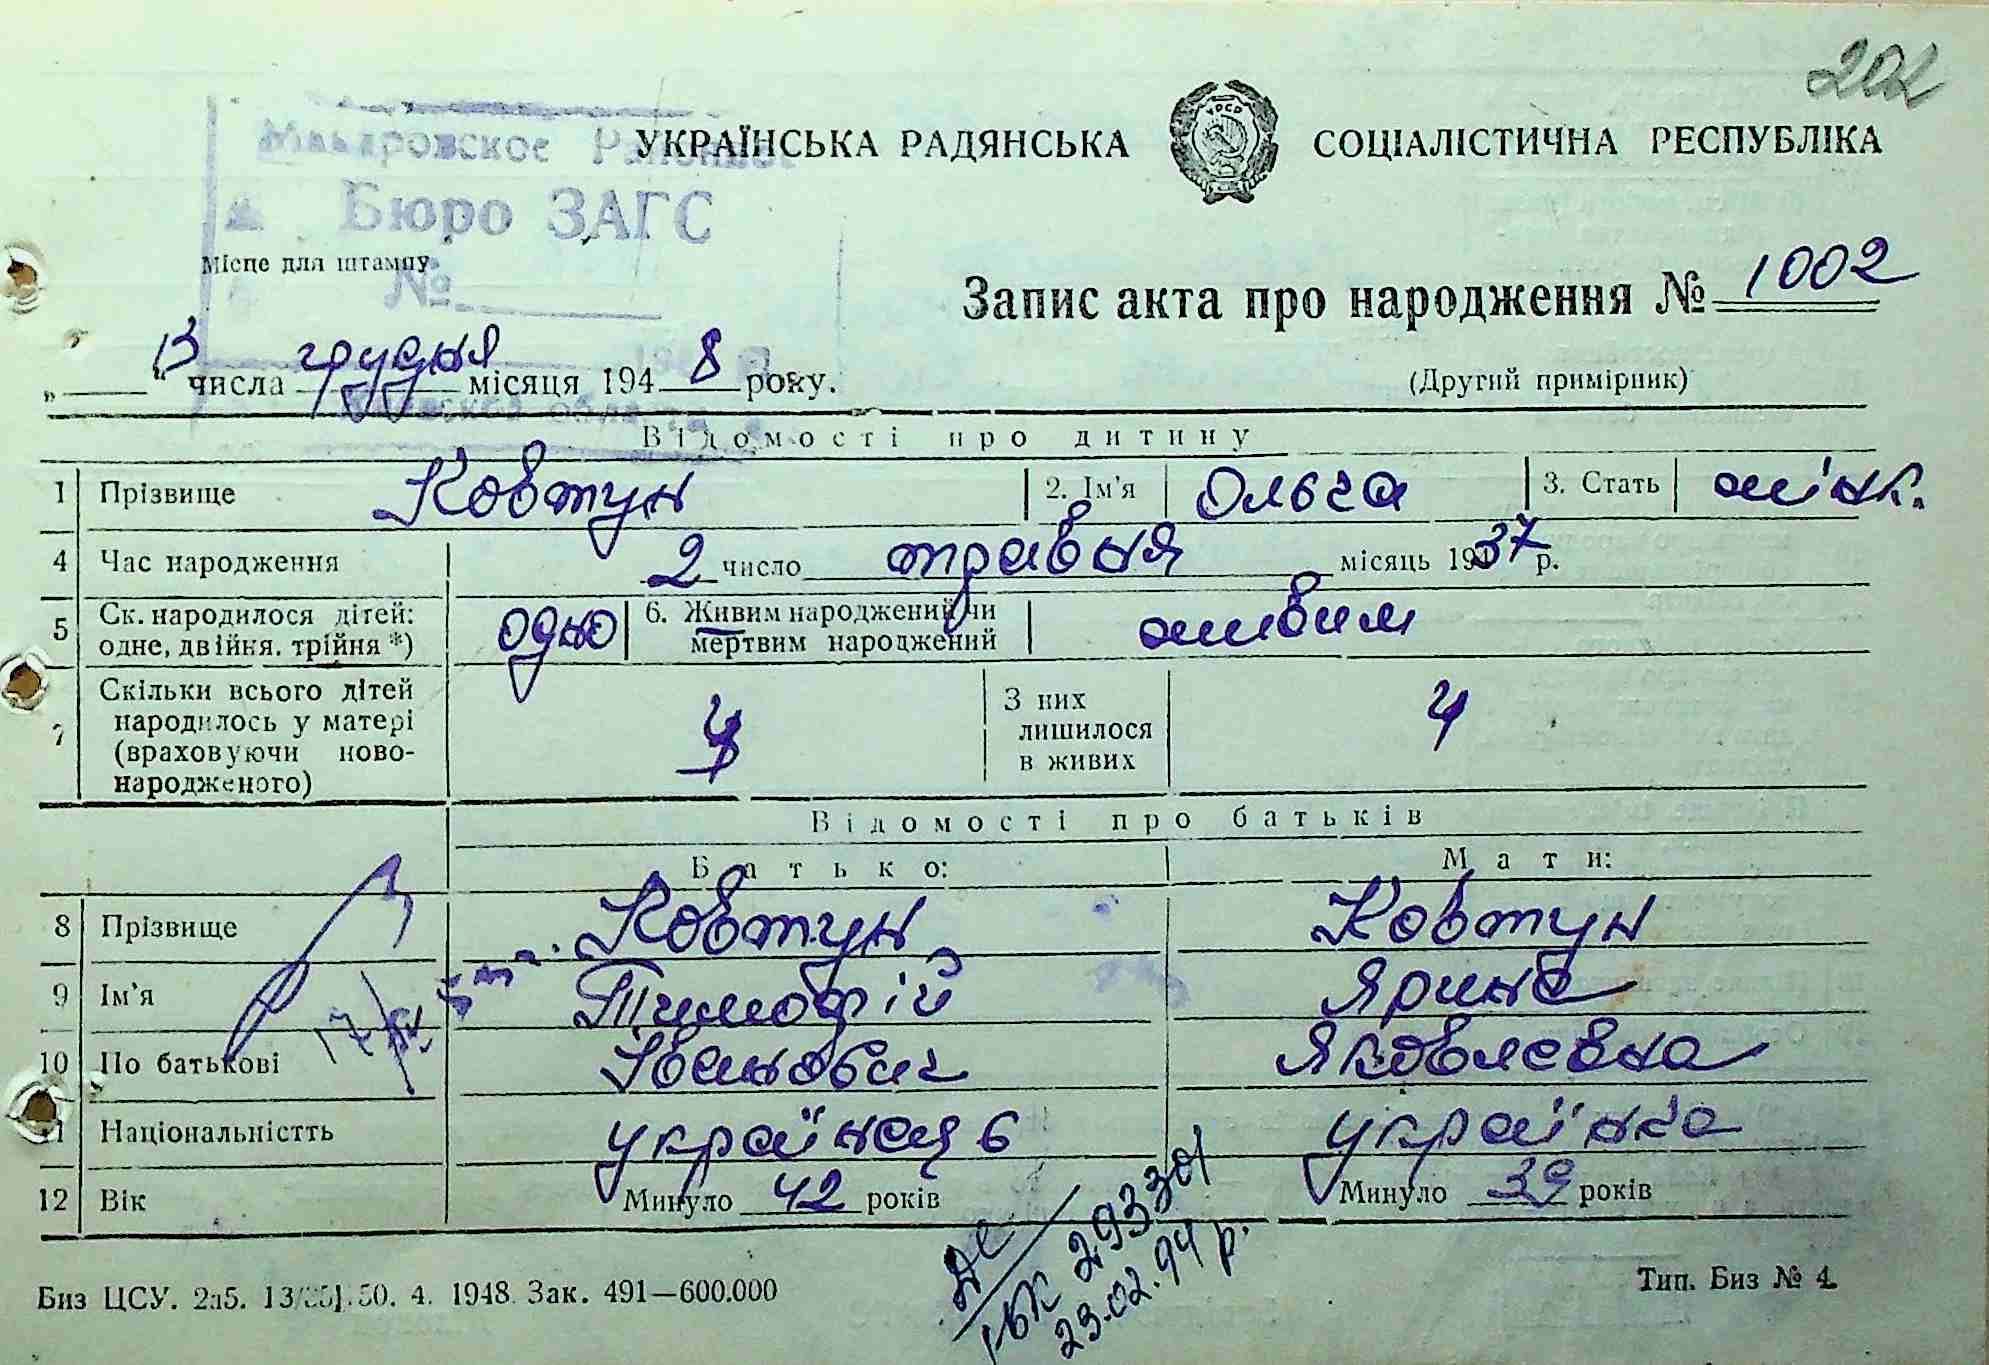 202
Макаровское Районное
УКРАЇНСЬКА РАДЯНСЬКА СОЦІАЛІСТИЧНА РЕСПУБЛІКА
Бюро ЗАГС
Місце для штампу
№
Запис акта про народження № 1002
„ 13 “ числа грудня місяця 194 8 року.
(Другий примірник)
Відомості про дитину
1 Прізвище Ковтун 2. Ім'я Ольга 3. Стать жінк.
4 Час народження 2 число травня місяць 1937 р.
5 Ск. народилося дітей: одне, двійня. трійня *) одно 6. Живим народжений чи мертвим народжений живим
7 Скільки всього дітей народилось у матері (враховуючи ново-народженого) 4 З них лишилося в живих 4
Відомості про батьків
Батько: Мати:
8 Прізвище Ковтун Ковтун
9 Ім'я Тимофій Ярина
10 По батькові Іванович Яковлевна
11 Національністть українець українка
12 Вік Минуло 42 років Минуло 39 років
І-БК 293301
23.02.94 р.
Биз ЦСУ. 2а5. 50. 4. 1948. Зак. 491—600.000
Тип. Биз № 4.